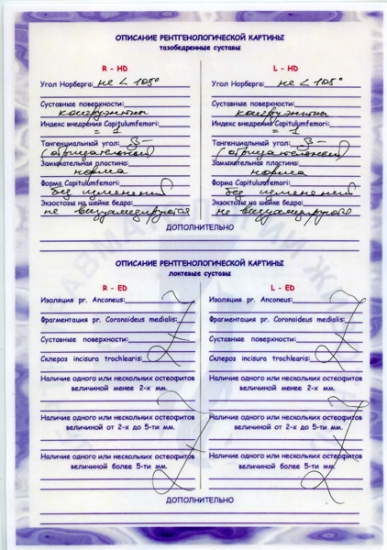 ОПИСАНИЕ РЕНТГЕНОЛОГИЧЕСКОЙ КАРТИНЫ
тазобедренные суставы
R - HD L - HD
Угол Норберга: не < 105° Угол Норберга: не < 105°
Суставные поверхности: Суставные поверхности:
конгруэнтны конгруэнтны
Индекс внедрения Capitulumfemori: Индекс внедрения Capitulumfemori:
= 1 = 1
Тангенциальный угол: Тангенциальный угол:
(отрицательный) (отрицательный)
Замыкательная пластина: Замыкательная пластина:
норма норма
Форма Capitulumfemori: Форма Capitulumfemori:
без изменений без изменений
Экзостозы на шейке бедра: Экзостозы на шейке бедра:
не визуализируются не визуализируются
ДОПОЛНИТЕЛЬНО
ОПИСАНИЕ РЕНТГЕНОЛОГИЧЕСКОЙ КАРТИНЫ
локтевые суставы
R - ED L - ED
Изоляция pr. Anconeus: Изоляция pr. Anconeus:
Фрагментация pr. Coronoideus medialis: Фрагментация pr. Coronoideus medialis:
Суставные поверхности: Суставные поверхности:
Склероз incisura trochlearis: Склероз incisura trochlearis:
Наличие одного или нескольких остеофитов Наличие одного или нескольких остеофитов
величиной менее 2-х мм. величиной менее 2-х мм.
Наличие одного или нескольких остеофитов Наличие одного или нескольких остеофитов
величиной от 2-х до 5-ти мм. величиной от 2-х до 5-ти мм.
Наличие одного или нескольких остеофитов Наличие одного или нескольких остеофитов
величиной более 5-ти мм. величиной более 5-ти мм.
ДОПОЛНИТЕЛЬНО